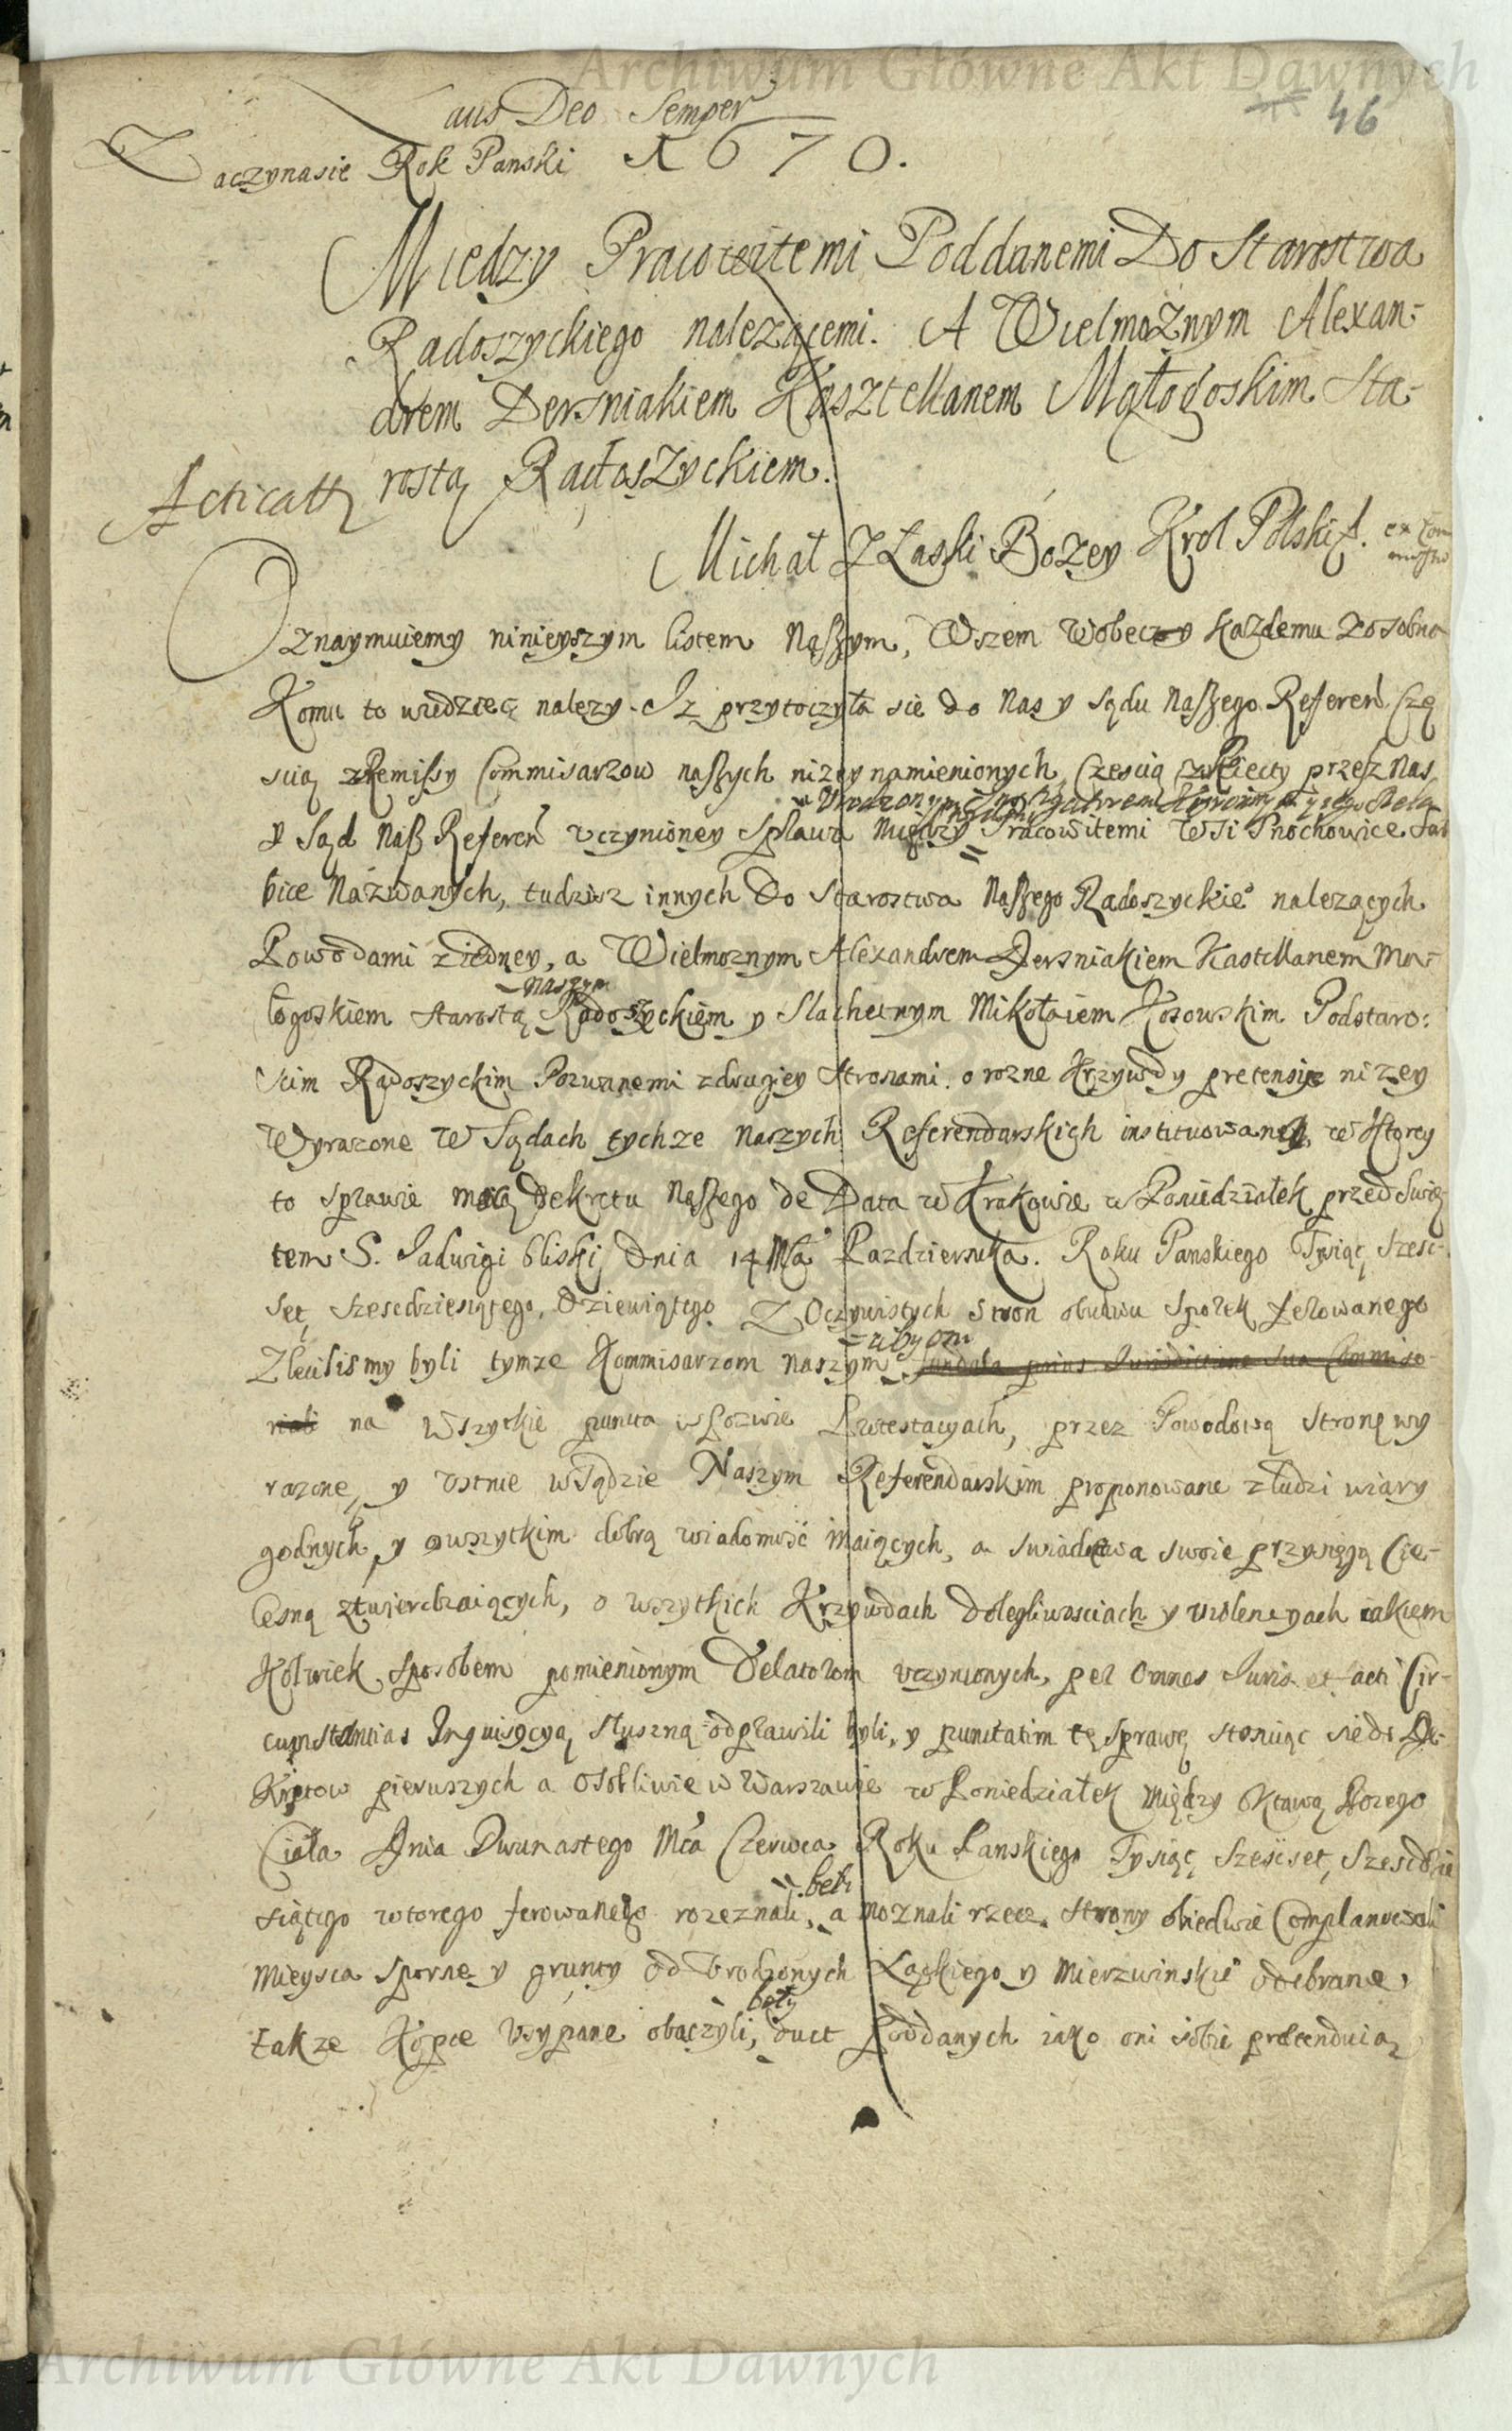 Archiwum Główne Akt Dawnych
46
Laus Deo Semper
Zaczynasie Rok Panski 1670.
Miedzy Pracowitemi Poddanemi Do Starostwa
Radoszyckiego nalezącemi. A Wielmoznym Alexan-
drem Dersniakiem Kasztellanem Małogoskim Sta-
rostą Radoszyckiem.
Acticatt
Michał Z Łaski Bozey Krol Polski
Oznaymuiemy ninieyszym listem Naszym, Wszem Wobec y kazdemu zosobna
Komu to wiedziec nalezy. Iz przytoczyła sie do Nas y Sądu Naszego Referen Czę
scią zRemissy Commisarzow naszych nizey namienionych, Czescią przez Nas
y Sąd Nasz Referen vczynioney Sprawa Między Pracowitemi Wsi Pnochowice
bice Nazwanych, tudziez innych Do Starostwa Naszego Radoszyckie nalezących
Powodami ziedney, a Wielmoznym Alexandrem Dersniakiem Kastellanem Ma-
naszym
łogoskiem Starostą Radoszyckiem y Slachetnym Mikołaiem Kosowskim Podstaro:
scim Radoszyckim Pozwanemi zdrugiey Stronami. o rozne Krzywdy pretensye nizey
Wyrazone W Sądach tychze Naszych Referendarskich instituowaney, w Ktorey
to sprawie mocą Dekretu Naszego de Data w Krakowie w Poniedziałek przed Swię
tem S. Jadwigi bliski Dnia 14 Mca Pazdziernika. Roku Panskiego Tysiąc Szesc-
set Szescdziesiątego, Dziewiątego Z Oczywistych Stron obudwu Spolek ferowanego
aby oni
Zlecilismy byli tymze Kommisarzom naszym fundata prius Iurisdictione sua Commiso-
riali na Wszytkie puncta wPozwie Protestacyach, przez Powodową Stronę wy
razone, y Ustnie wSądzie Naszym Referendarskim proponowane z ludzi wiary
godnych, y owszytkim dobrą wiadomość maiących, a swiadectwa swoie przysięgą Cie-
lesną ztwierdzaiących, o wszytkich Krzywdach dolegliwosciach y violencyach iakiem
Kolwiek sposobem pomienionym Delatorom vczynionych, per omnes Iuris et facti Cir-
cumstantias Inquisycyą słuszną odprawili byli, y punctatim tę sprawę stosuiąc sie do De-
kretow pierwszych a osobliwie w Warszawie w Poniedziałek między Oktawą Bozego
Ciała Dnia Dwunastego Mca Czerwca Roku Panskiego Tysiąc Szescset, Szescdzie
siątego wtorego ferowanego rozeznali, a moznali rzecz. Strony obiedwie Complanowali
Mieysca Sporne y grunty od Urodzonych Łąckiego y Mierzwinskie odebrane,
były
takze Kopce Usypane obaczyli, duct Poddanych iako oni sobie praetenduią
Archiwum Główne Akt Dawnych